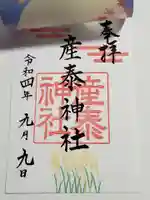 奉拝
産泰神社
産泰
神社
令和四年 九月 九日